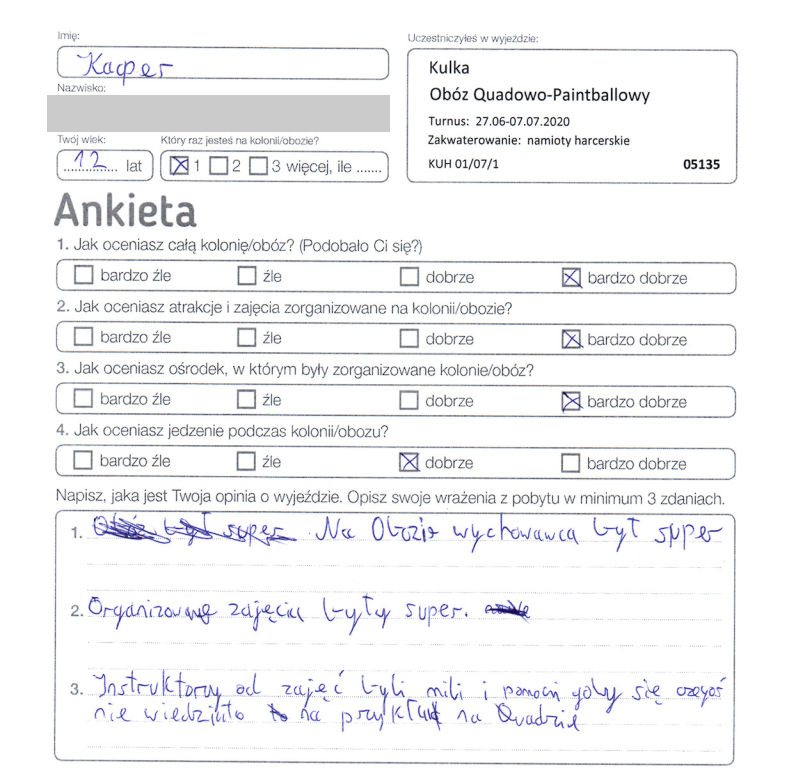 Imię:
Kacper
Nazwisko:
Twój wiek:
12 lat
Który raz jesteś na kolonii/obozie?
1 2 3 więcej, ile .......
Uczestniczyłeś w wyjeździe:
Kulka
Obóz Quadowo-Paintballowy
Turnus: 27.06-07.07.2020
Zakwaterowanie: namioty harcerskie
KUH 01/07/1 05135
Ankieta
1. Jak oceniasz całą kolonię/obóz? (Podobało Ci się?)
bardzo źle źle dobrze bardzo dobrze
2. Jak oceniasz atrakcje i zajęcia zorganizowane na kolonii/obozie?
bardzo źle źle dobrze bardzo dobrze
3. Jak oceniasz ośrodek, w którym były zorganizowane kolonie/obóz?
bardzo źle źle dobrze bardzo dobrze
4. Jak oceniasz jedzenie podczas kolonii/obozu?
bardzo źle źle dobrze bardzo dobrze
Napisz, jaka jest Twoja opinia o wyjeździe. Opisz swoje wrażenia z pobytu w minimum 3 zdaniach.
1. Obóz był super. Na Obozie wychowawca był super
2. Organizowane zajęcia były super.
3. Instruktorzy od zajęć byli mili i pomocni gdby się czegoś
nie wiedziało to na przykład na Quadzie